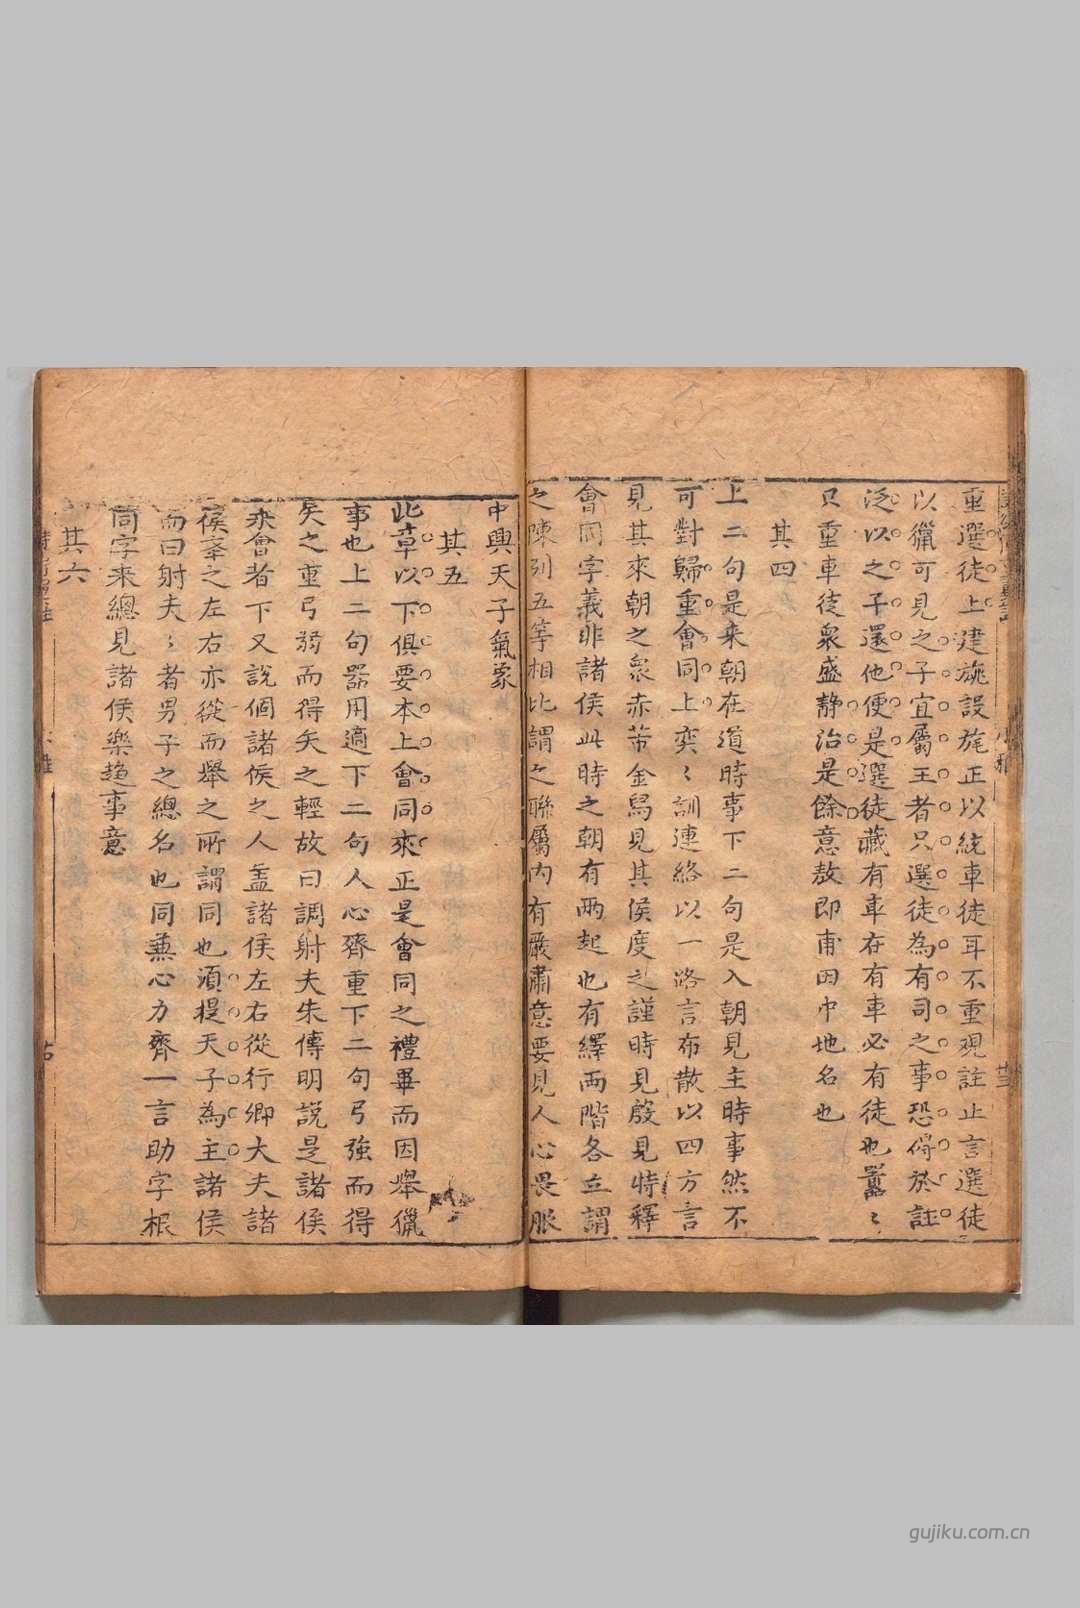 重選徒上建旐設旄正以統車徒耳不重現註止言選徒
以獵可見之子宜屬王者只選徒為有司之事恐碍於註
泛以之子還他便是選徒藏有車在有車必有徒也囂〻
只重車徒衆盛静治是餘意敖即甫田中地名也
其四
上二句是来朝在道時事下二句是入朝見主時事然不
可對歸重會同上奕〻訓連絡以一路言布散以四方言
見其來朝之衆赤芾金舄見其侯度之謹時見殷見特釋
會同字義非諸侯此時之朝有兩起也有繹兩階各立謂
之陳列五等相比謂之聯屬内有嚴肅意要見人心畏服
中興天子氣象
其五
此章以下俱要本上會同來正是會同之禮畢而因舉獵
事也上二句器用適下二句人心齊重下二句弓強而得
矢之重弓弱而得矢之輕故曰調射夫朱傳明説是諸侯
來會者下又説個諸侯之人盖諸侯左右從行卿大夫諸
侯舉之左右亦從而舉之所謂同也須提天子為主諸侯
而曰射夫〻者男子之總名也同兼心力齊一言助字根
同字来總見諸侯樂趋事意
其六
gujiku.com.cn